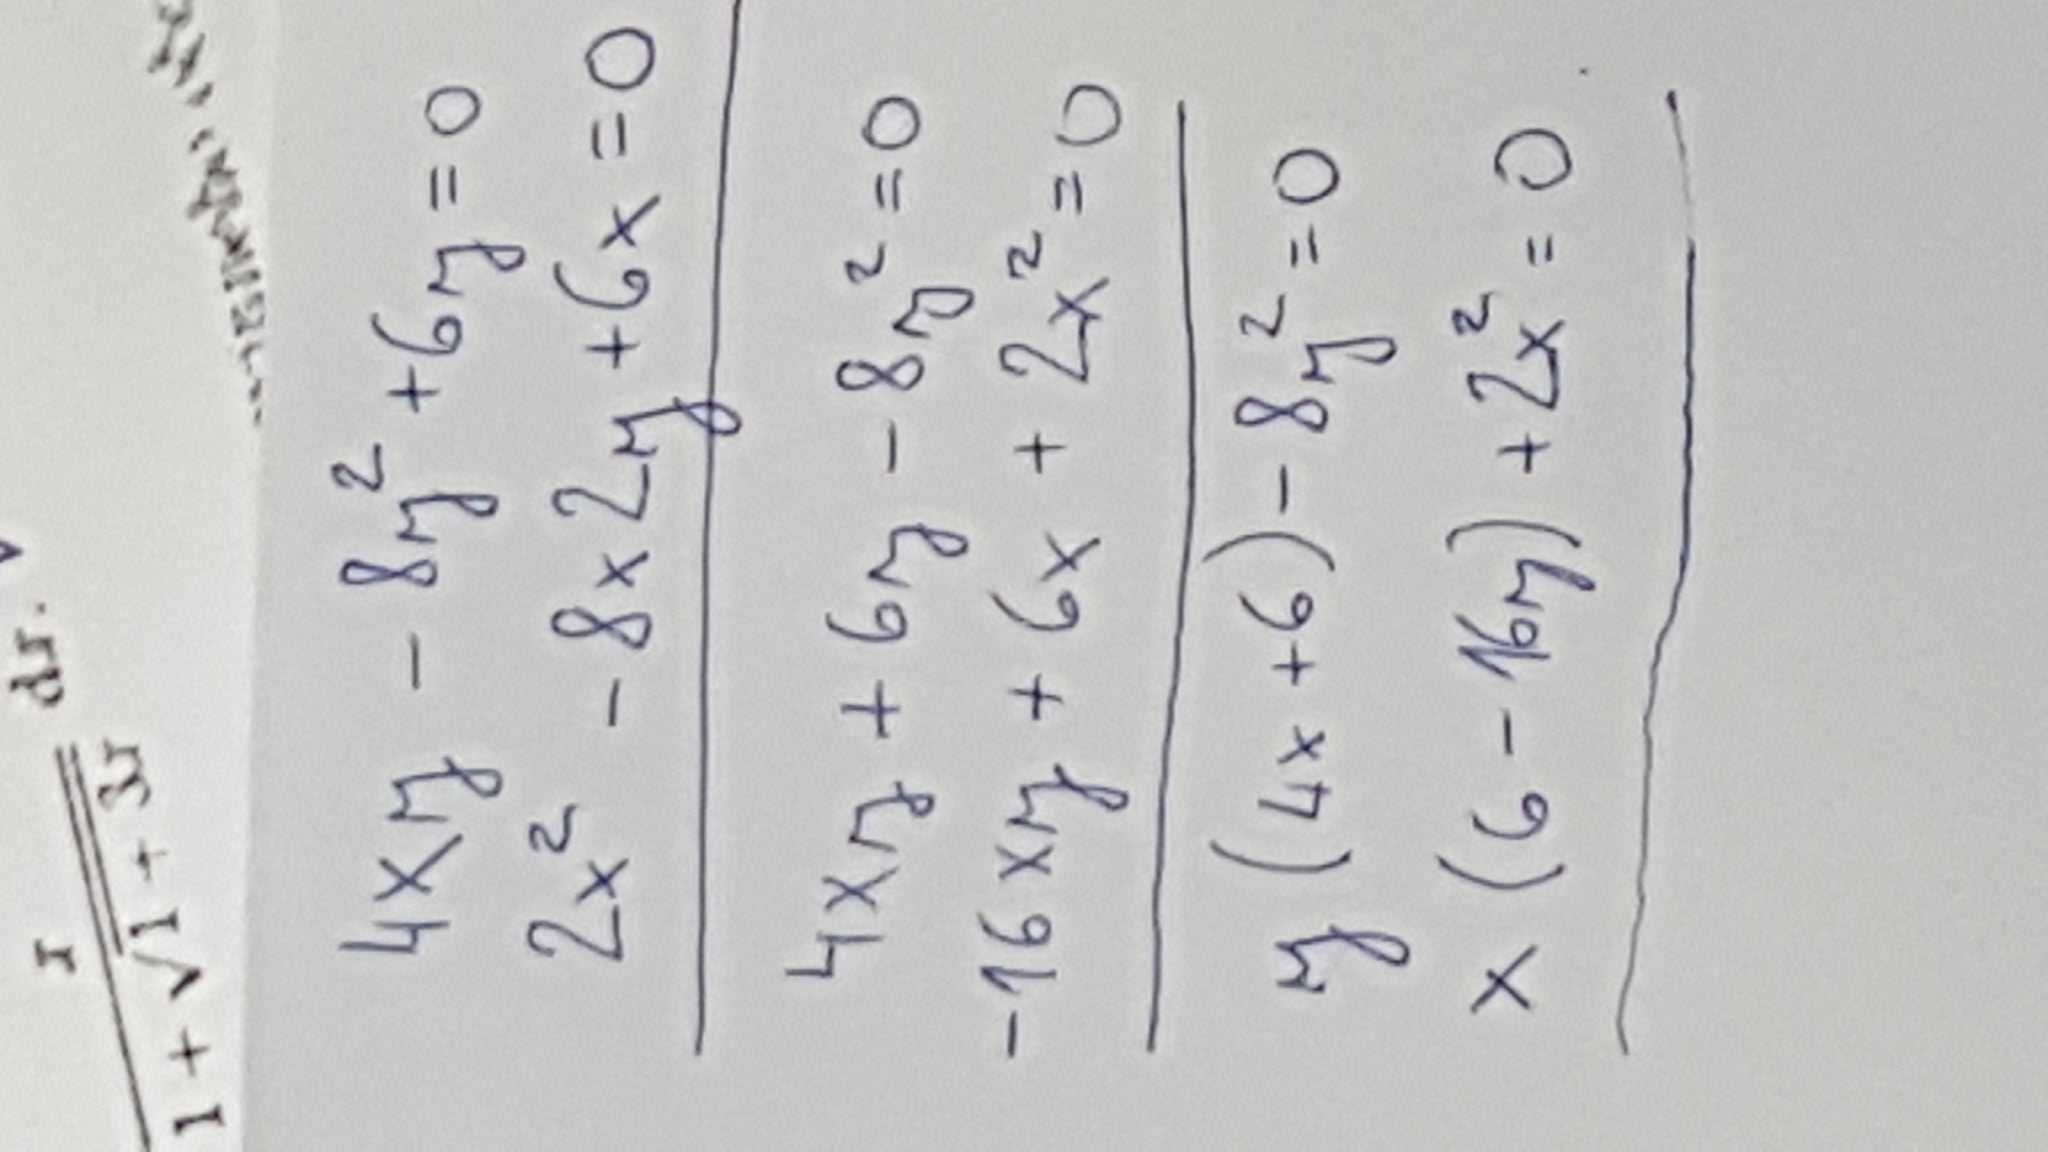 r
dr.
1 + √1 + 3r
4xy - 8y² + 6y = 0
2x² - 8x2y + 6x = 0
4xy + 6y - 8y² = 0
-16xy + 6x + 2x² = 0
y (4x + 6) - 8y² = 0
x (6 - 16y) + 2x² = 0